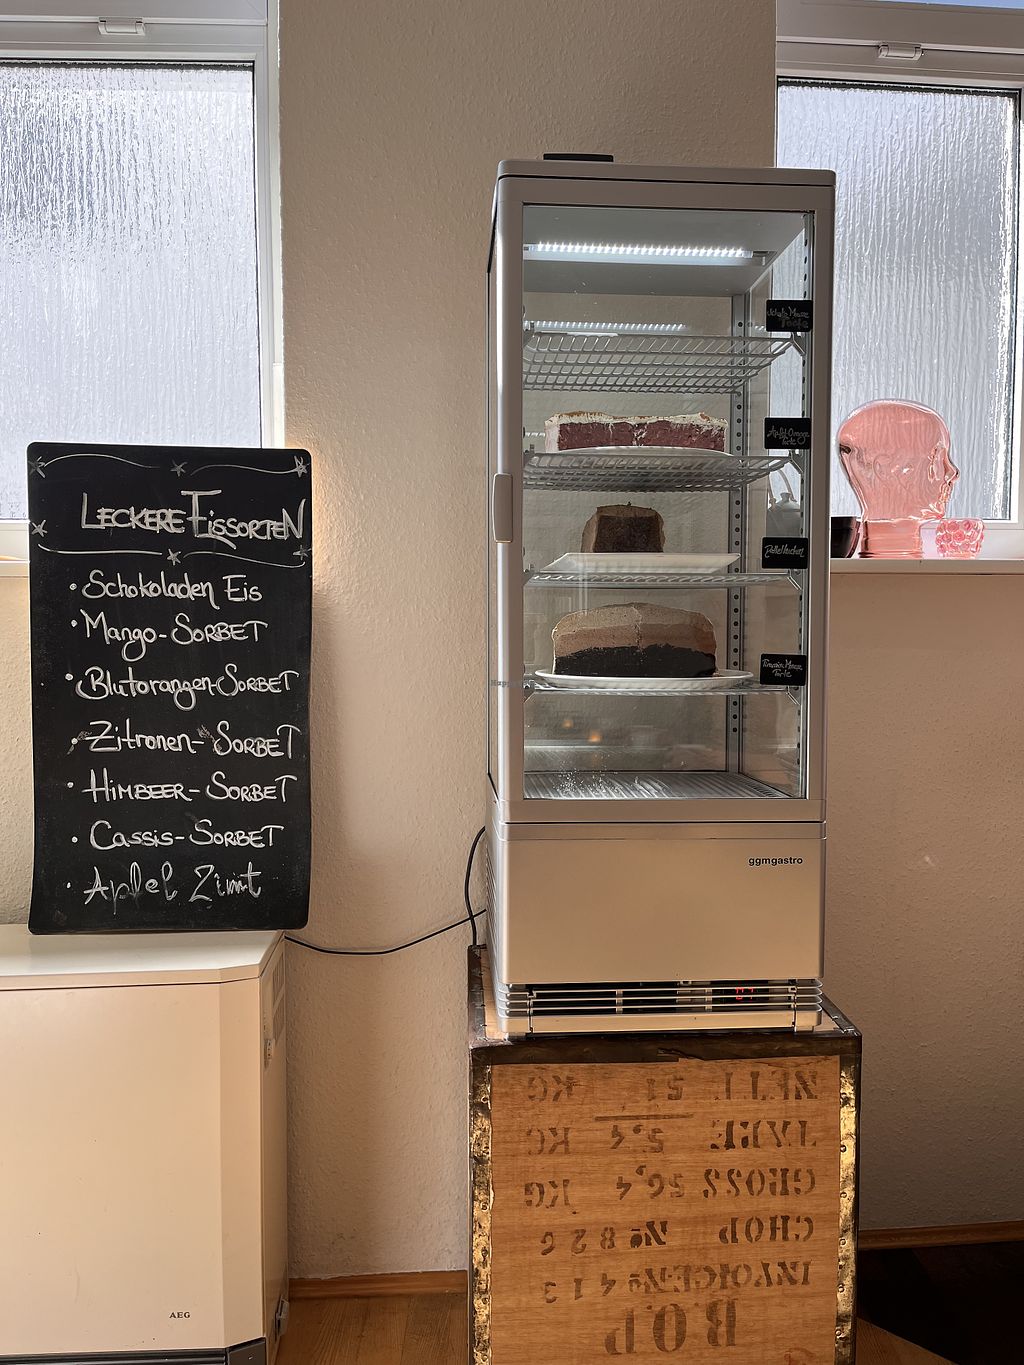 LECKERE EISSORTEN
• Schokoladen Eis
• Mango-SORBET
• Blutorangen-SORBET
• Zitronen-SORBET
• HIMBEER-SORBET
• Cassis-SORBET
• Apfel Zimt
AEG
Torte
Torte
Torte
ggmgastro
B.O.P
INVOICE No 413
CHOP No 826
GROSS 56,4 KG
TARE 5,4 KG
NETT 51 KG